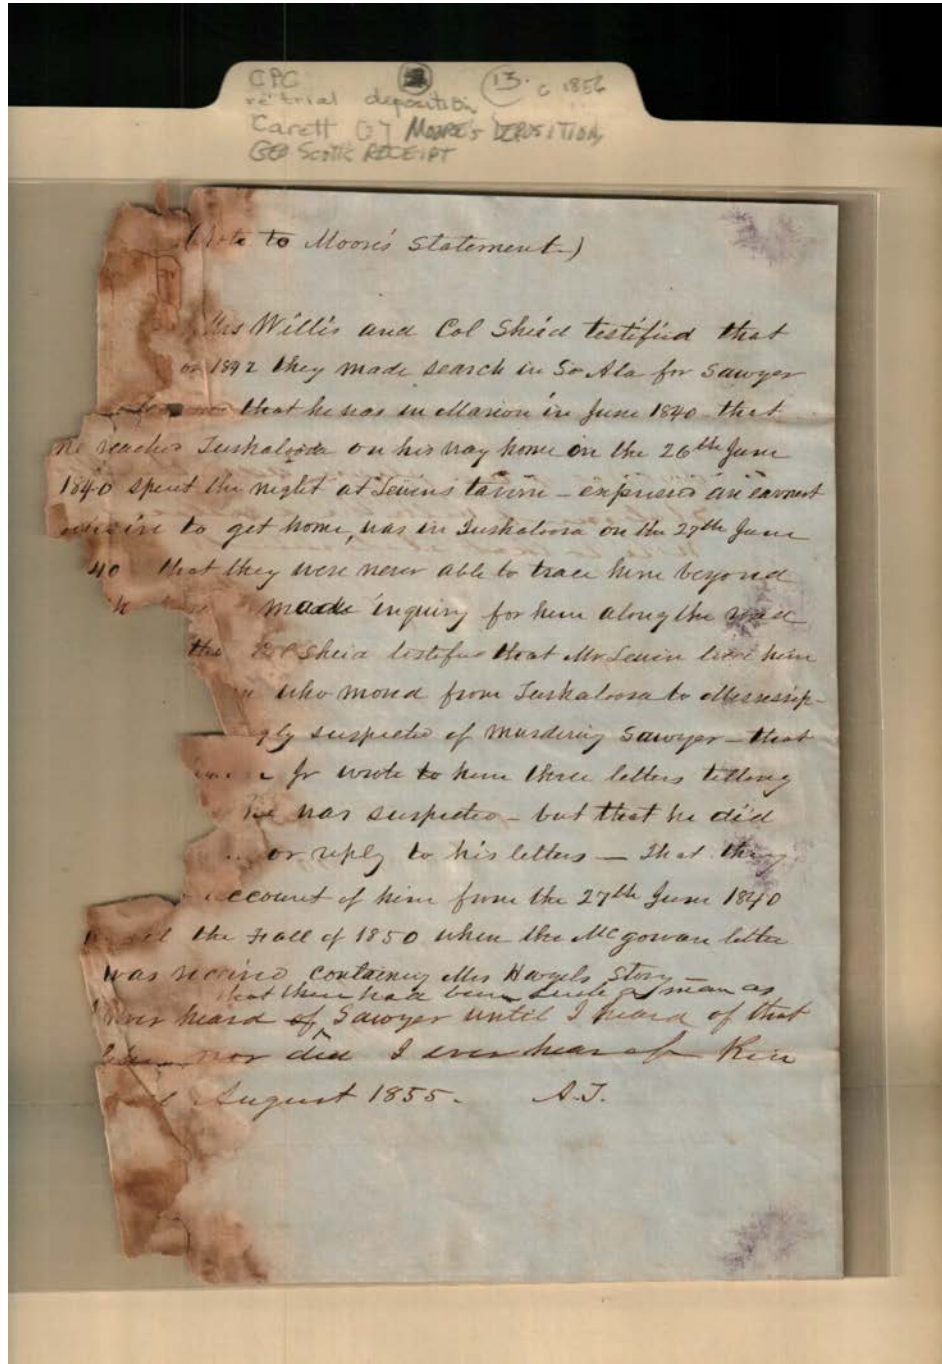 CPC 13. c 1856
re trial deposition
Carett MOORE'S DEPOSITION,
GEO Scott's RECEIPT
(Note to Moore's Statement.)
Mrs Willis and Col Sheid testified that
or 1842 they made search in So Ala for Sawyer
that he was in Marion in June 1840 that
he reached Tuskaloosa on his way home on the 26th June
1840 spent the night at Lewins tavern - expressed an earnest
desire to get home, was in Tuskaloosa on the 27th June
40 that they were never able to trace him beyond
made inquiry for him along the road
the Col Sheid testified that Mr Lewin him
who moved from Tuskaloosa to Mississip-
gly suspected of murdering Sawyer - that
Jr wrote to him three letters telling
he was suspected - but that he did
or reply to his letters - That they
account of him from the 27th June 1840
until the Fall of 1850 when the McGowan letter
was received containing Mrs Hazels story -
that there had been such a man as
never heard of Sawyer until I heard of that
nor did I ever hear of
August 1855. A.J.